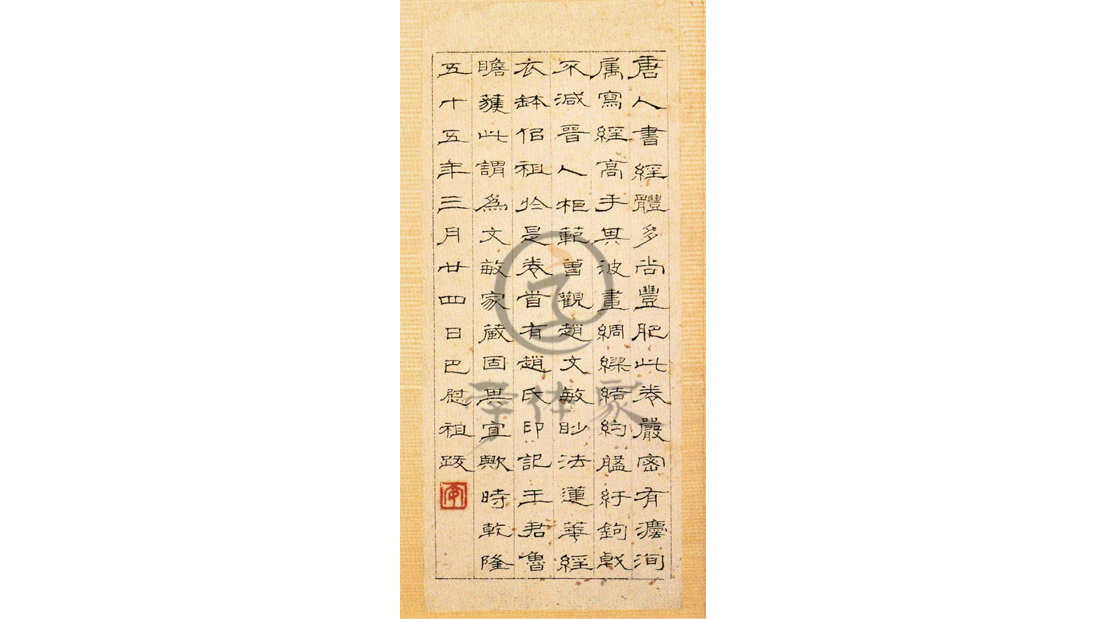 唐人書經體多尚豐肥此卷嚴密有灋洵
屬寫經高手其波畫綢繆結約紆鉤戟
不減晉人柜範曾觀趙文敏眇法蓮華經
衣缽佀祖於是卷首有趙氏印記王君魯
瞻獲此謂為文敏家藏固其宜歟時乾隆
五十五年三月廿四日巴慰祖跋
字体家